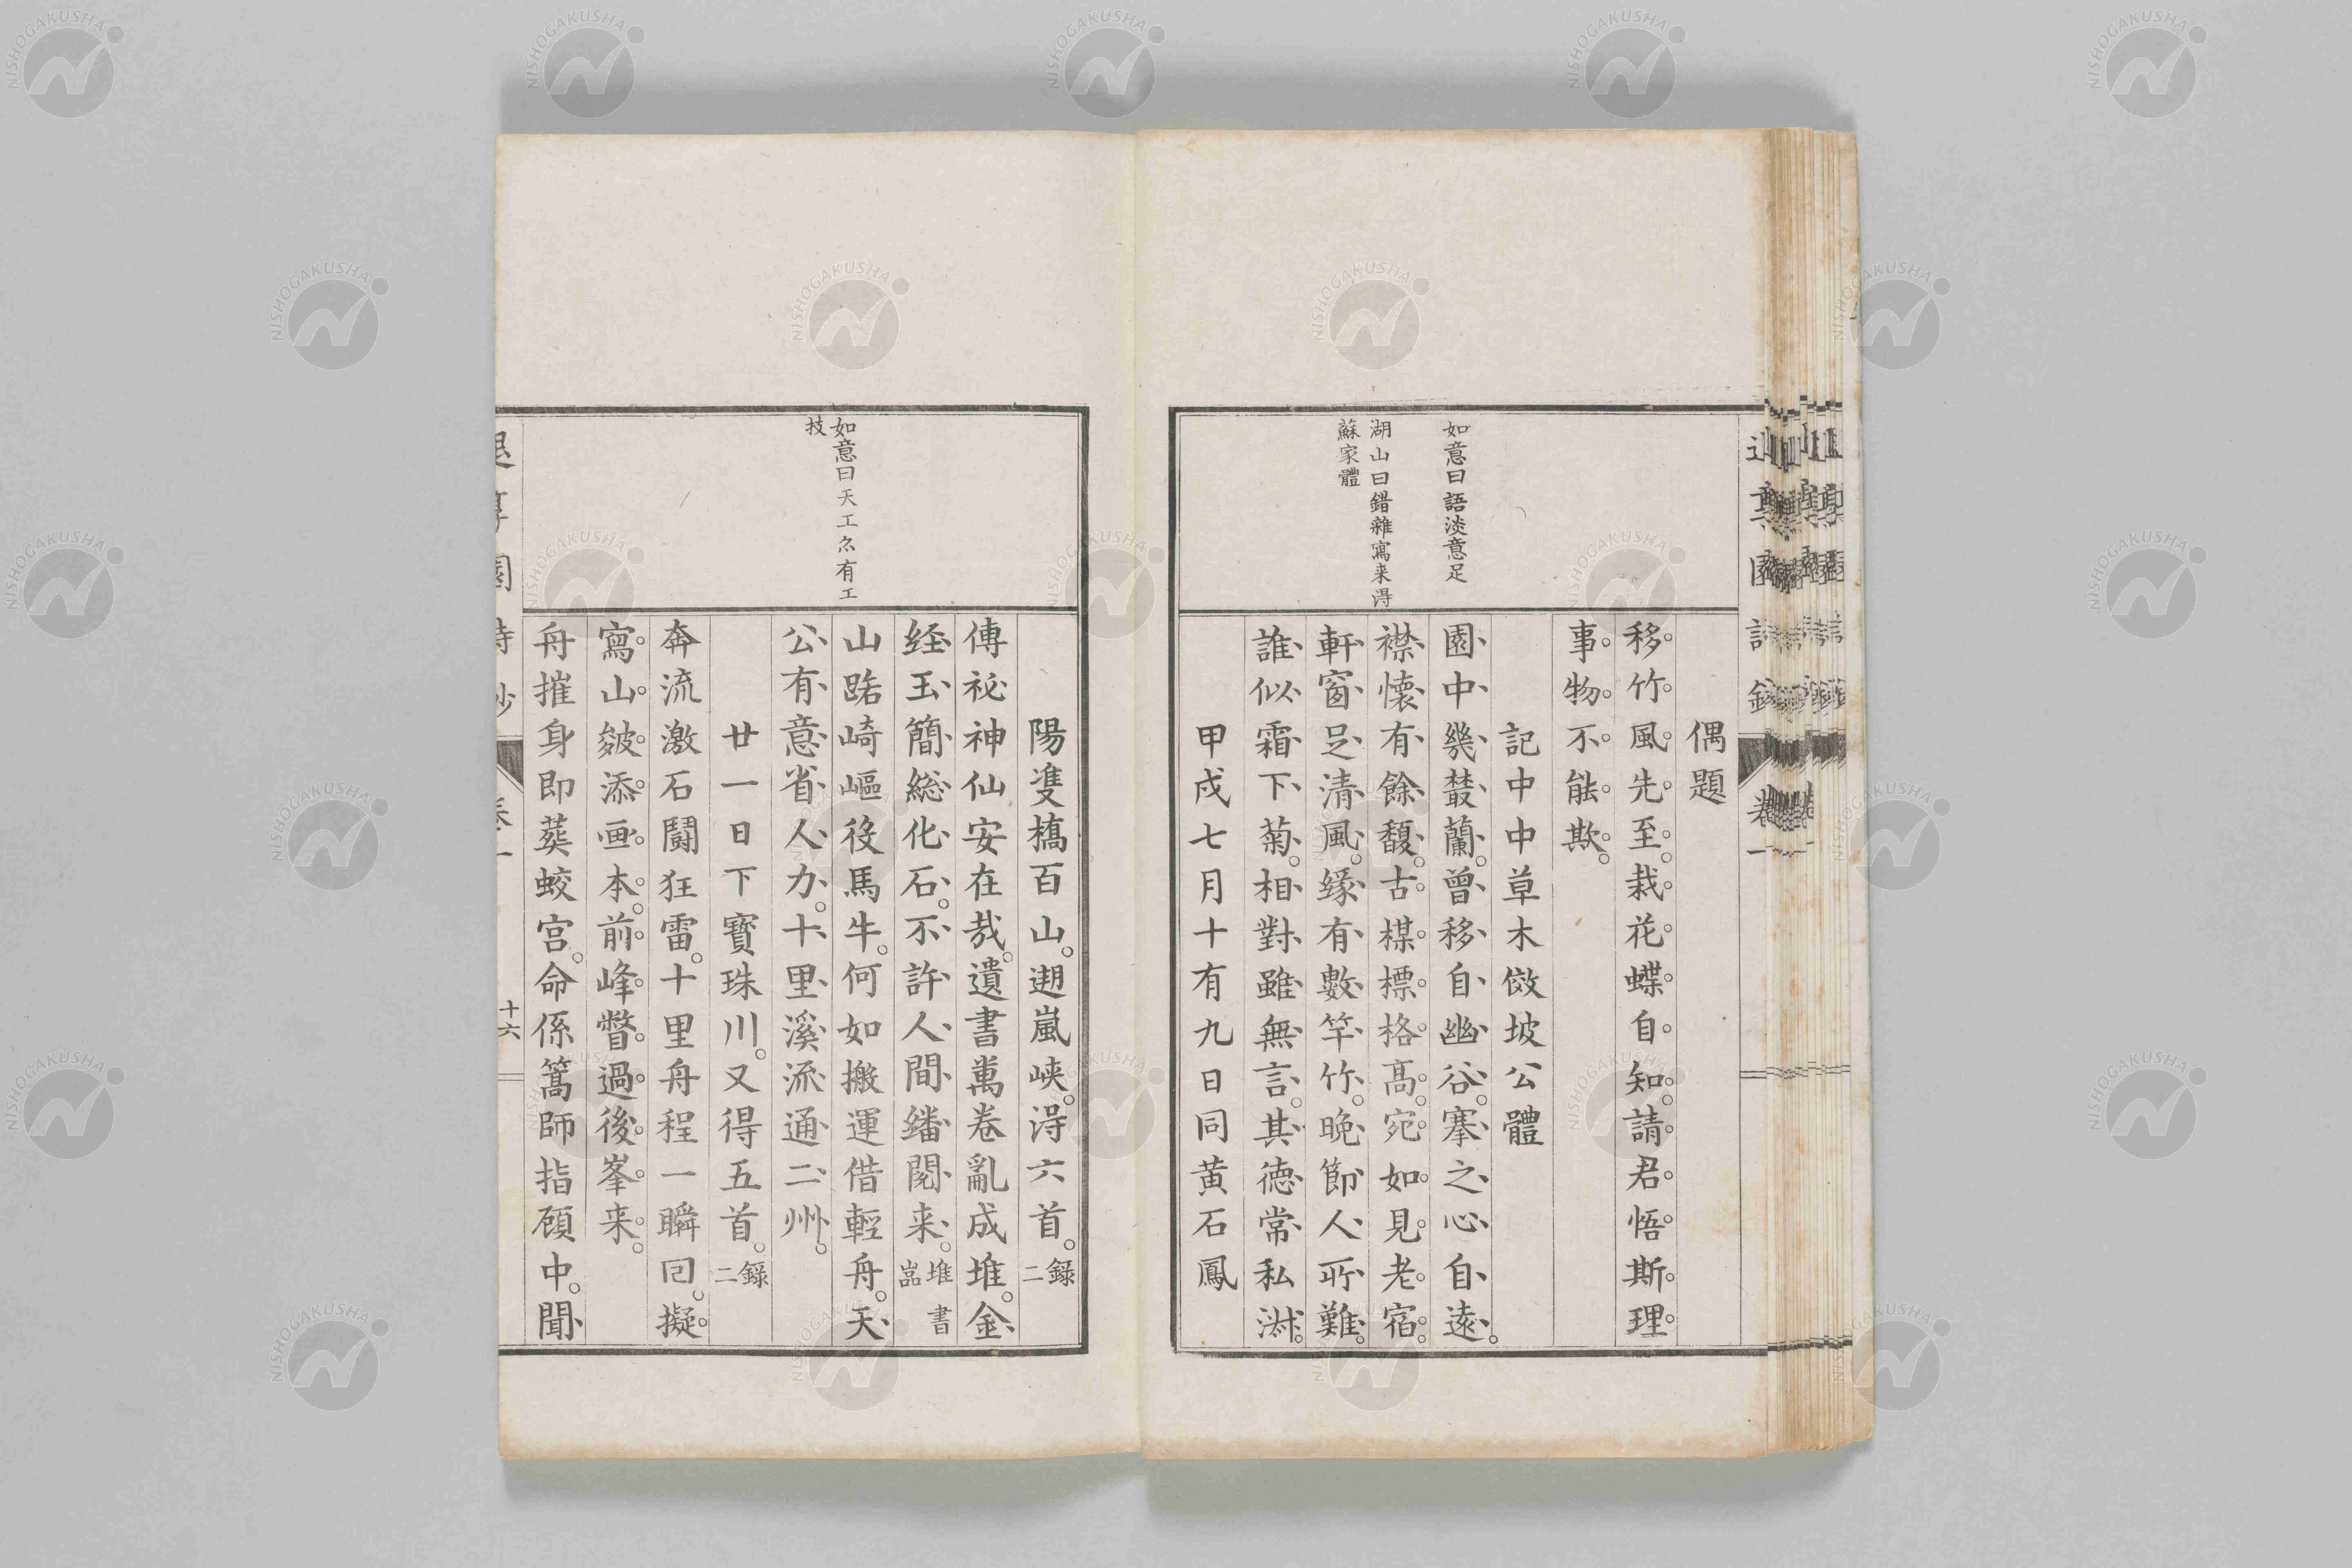 偶題
移竹風先至。栽花蝶自知。請君悟斯理。
事物不能欺。
記中中草木倣坡公體
園中幾叢蘭。曾移自幽谷。搴之心自遠。
襟懷有餘馥。古楳標格高。宛如見老宿。
軒窗足清風。緣有數竿竹。晚節人所難。
誰似霜下菊。相對雖無言。其德常私淑。
甲戌七月十有九日同黄石鳳
如意曰語淡意足
湖山曰錯雜寫来得
蘇家體
陽隻檇百山。遡嵐峡。得六首。錄二
傳祕神仙安在哉。遺書萬卷亂成堆。金
经玉簡総化石。不許人間繙閱来。堆書嵓
山路崎嶇役馬牛。何如搬運借輕舟。天
公有意省人力。十里溪流通二州。
廿一日下寶珠川。又得五首。錄二
奔流激石鬪狂雷。十里舟程一瞬回。擬
寫山皴添画本。前峰瞥過後峯来。
舟摧身即葬蛟宮。命係篙師指顧中。聞
如意曰天工亦有工
技
園
卷一
十六
NISHOGAKUSHA